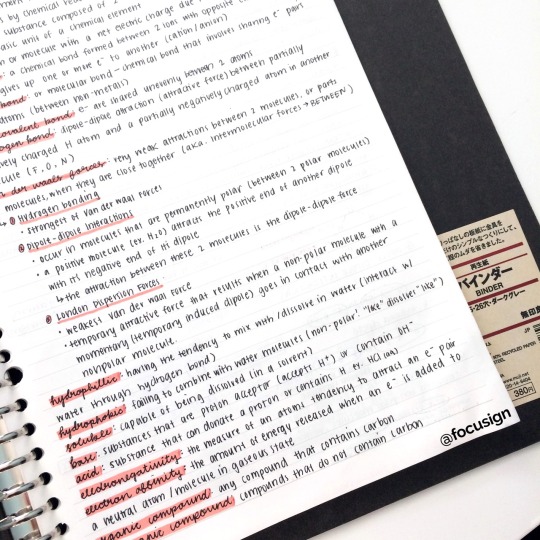 substance composed of 2
basic unit of a chemical element
or molecule with a net electric charge due
: a chemical bond formed between 2 ions with opposite
gives up one or more e⁻ to another (cation/anion)
bond: or molecular bond - chemical bond that involves sharing e⁻ pairs
atoms (between non-metals)
covalent bond: e⁻ are shared unevenly between 2 atoms
ogen bond: dipole-dipole attraction (attractive force) between partially
ively charged H atom and a partially negatively charged atom in another
cule (F, O, N)
n der waals forces: very weak attractions between 2 molecules, or parts
molecules, when they are close together (aka. intermolecular forces → BETWEEN)
① Hydrogen bonding
• strongest of van der waal forces
② Dipole-dipole interactions
• occur in molecules that are permanently polar (between 2 polar molecules)
• a positive molecule (ex. H₂O) attracts the positive end of another dipole
with its negative end of its dipole
↳ the attraction between these 2 molecules is the dipole-dipole force
③ London Dispersion Forces
• weakest van der waal force
• temporary attractive force that results when a non-polar molecule with a
momentary (temporary induced dipole) goes in contact with another
nonpolar molecule.
hydrophillic: having the tendency to mix with/dissolve in water (interact w/
water through hydrogen bond)
hydrophobic: failing to combine with water molecules (non-polar! "like" dissolves "like")
soluble: capable of being dissolved (in a solvent)
base: substances that are proton acceptor (accept H⁺) or contain OH⁻
acid: substance that can donate a proton or contains H ex. HCl (aq)
electronegativity: the measure of an atoms tendency to attract an e⁻ pair
electron affinity: the amount of energy released when an e⁻ is added to
a neutral atom/molecule in gaseous state
organic compound: any compound that contains carbon
anic compound: compounds that do not contain carbon
@focusign
再生紙
バインダー
BINDER
26穴・ダークグレー
無印良
JP
RECYCLED PAPER
380円